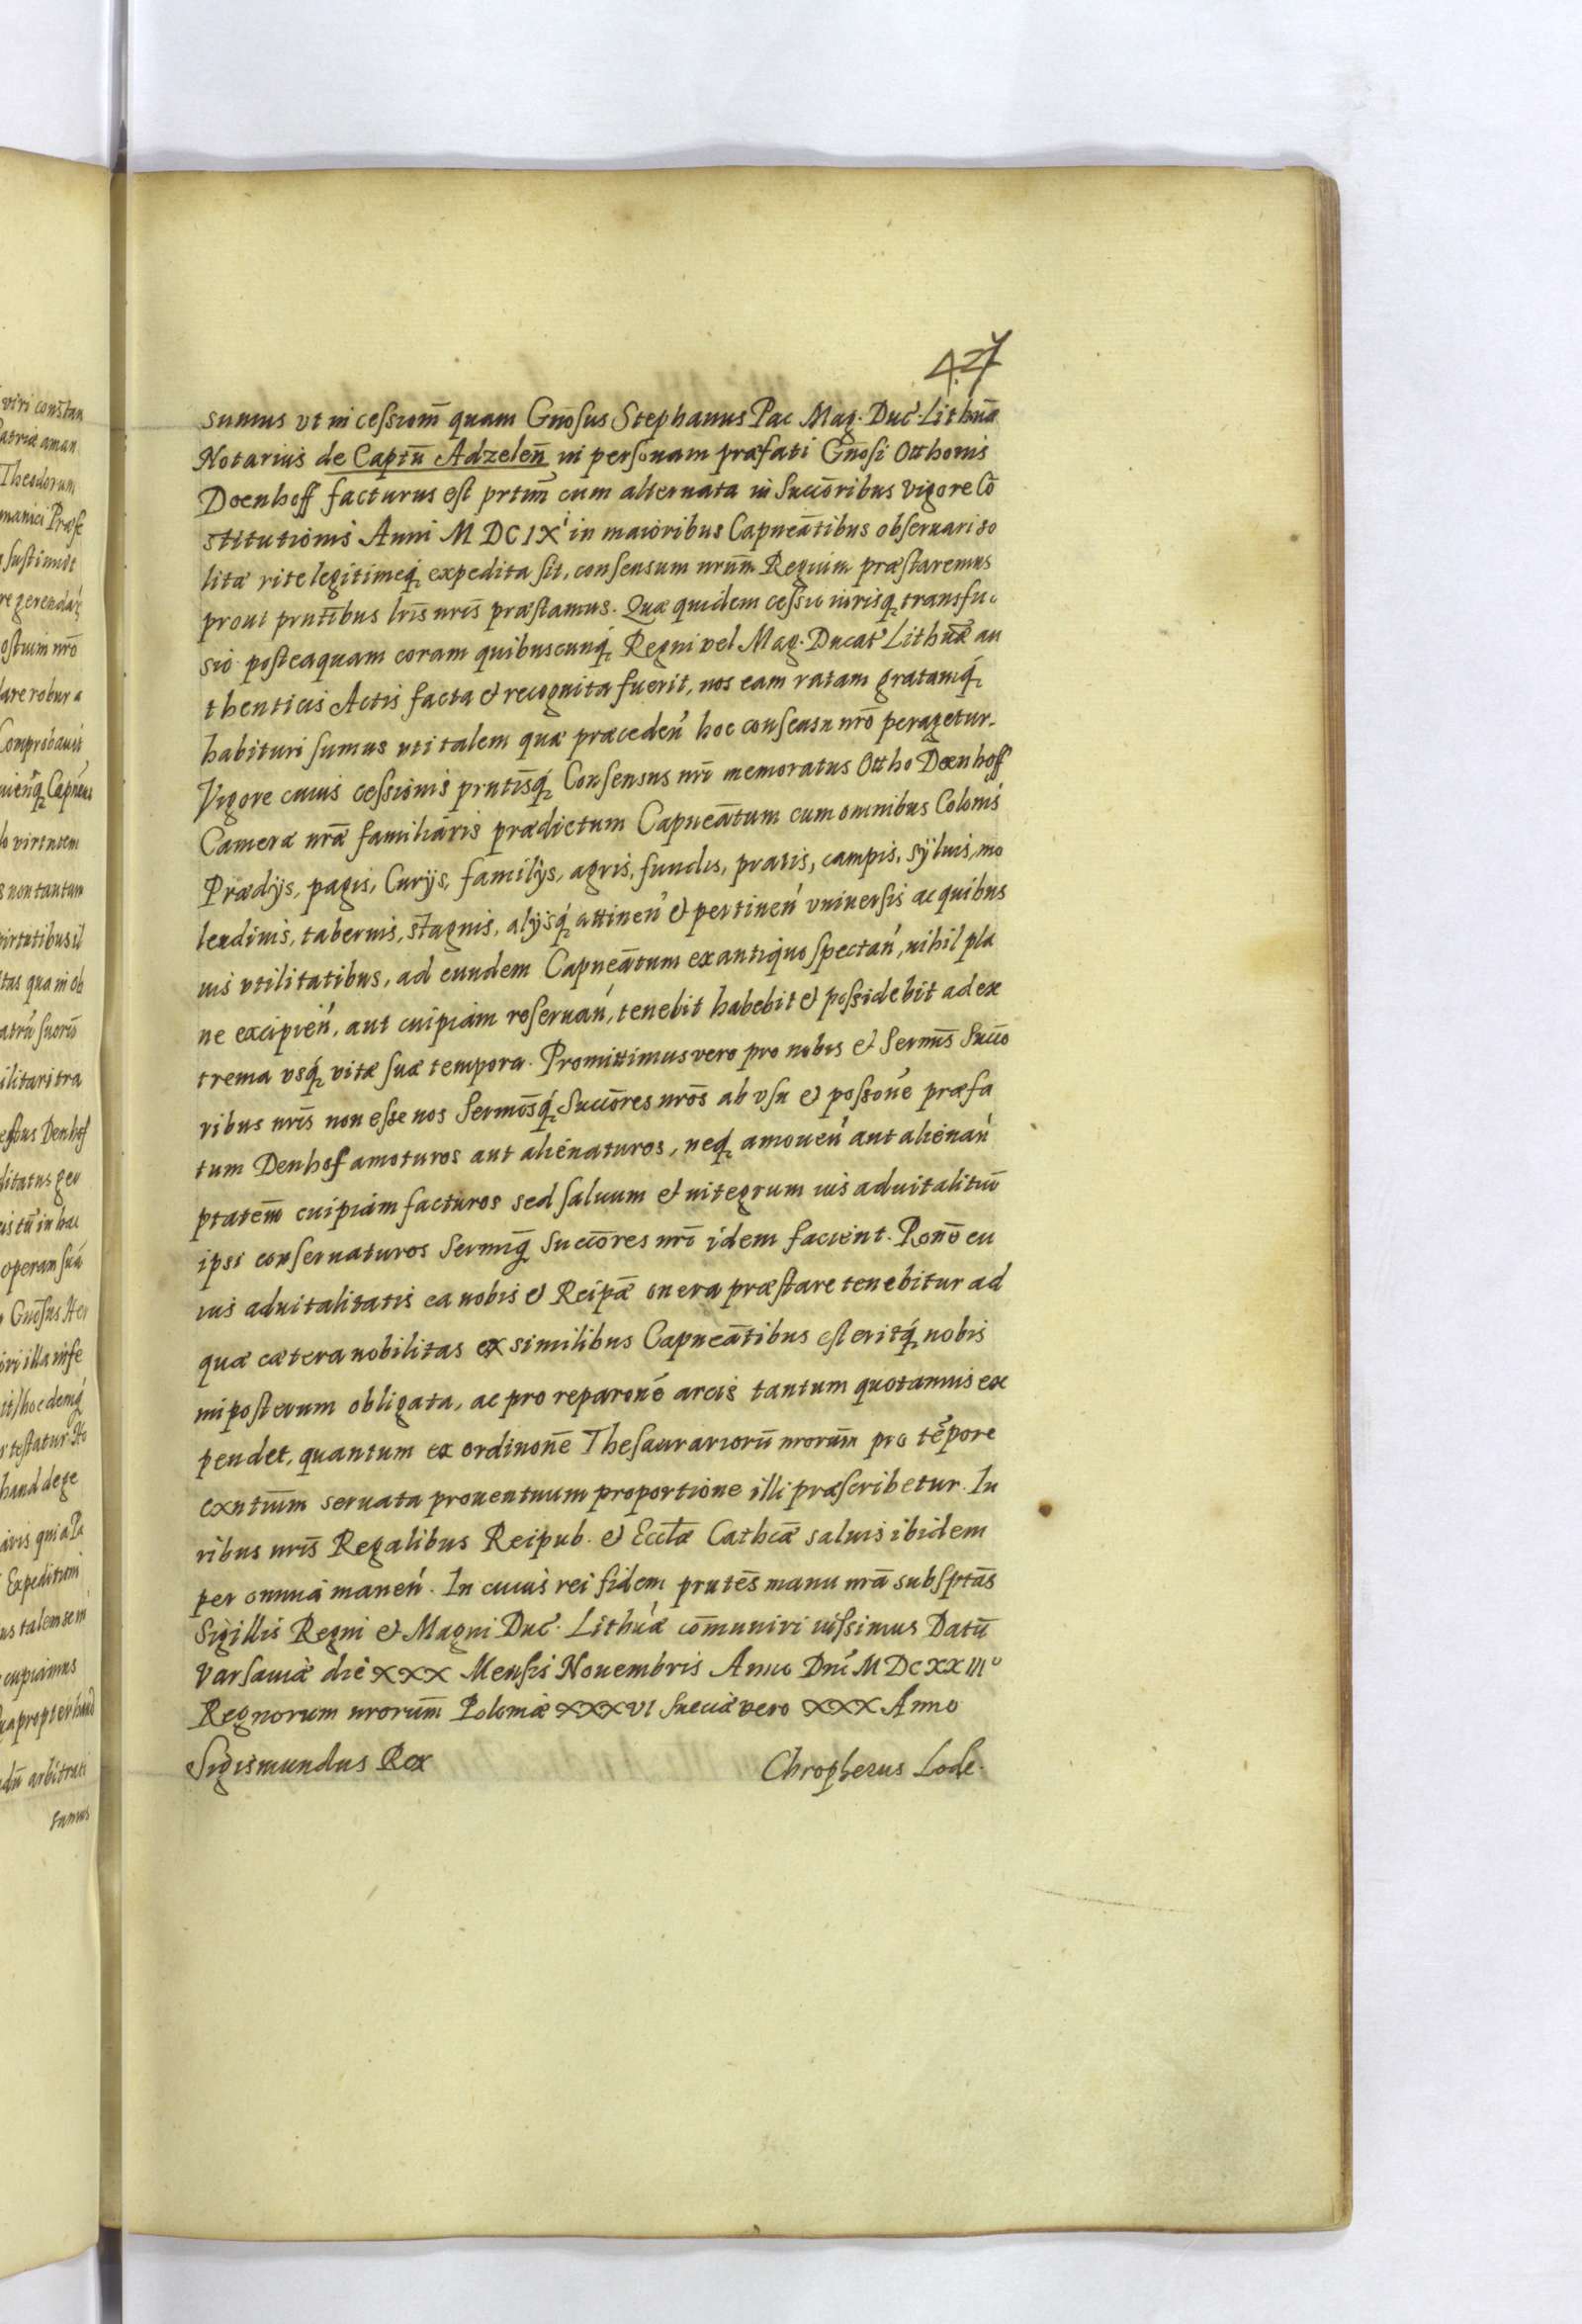 427
sumus vt in cessionē quam Gnōsus Stephanus Pac Mag. Duc. Lithuāe
Notarius de Captū Adzelen̄ in personam præfati Gnōsi Otthonis
Doenhoff facturus est prtīm cum alternata in Succōribus vigore Cō
stitutionis Anni M DC IX in maioribus Capneātibus obseruari so
litæ rite legitimeq́ꝫ expedita sit, consensum nrūm Regium præstaremus
prout prntībus lrīs nrīs præstamus. Quæ quidem cessio iurisqꝫ transfu
sio posteaquam coram quibuscunq́ꝫ Regni vel Mag. Ducat Lithuāe au
thenticis Actis facta et recognita fuerit, nos eam ratam gratamq́ꝫ
habituri sumus vti talem quæ præceden hoc consensu nrō peragetur.
Vigore cuius cessionis prntīsq́ꝫ Consensus nrī memoratus Ottho Doenhoff
Cameræ nrāe familiaris prædictum Capneātum cum omnibus Colonis
Prædijs, pagis, Curijs, familijs, agris, fundis, pratis, campis, syluis, mo
lendinis, tabernis, stagnis, alijsq́ꝫ attinen et pertinen vniuersis ac quibus
uis vtilitatibus, ad eundem Capneātum ex antiquo spectan, nihil pla
ne excipien, aut cuipiam reseruan, tenebit habebit et possidebit ad ex
trema vsq́ꝫ vitæ suæ tempora. Promittimus vero pro nobis et Sermīs Succō
ribus nrīs non esse nos Sermōsq́ꝫ Succōres nrōs ab vsu et possone præfa
tum Denhof amoturos aut alienaturos, neqꝫ amouen aut alienan
ptatēm cuipiam facturos sed saluum et integrum ius aduitalitiū
ipsi conseruaturos Sermiq́ꝫ Succōres nrī idem facient. Ronē cu
ius aduitalitatis ea nobis et Reipāe onera præstare tenebitur ad
quæ cætera nobilitas ex similibus Capneātibus est eritq́ꝫ nobis
inposterum obligata, ac pro reparone arcis tantum quotannis ex
pendet, quantum ex ordinonē Thesaurariorū nrorūm pro tēpore
exntīum seruata prouentuum proportione illi præscribetur. Iu
ribus nrīs Regalibus Reipub. et Ecclāe Cathcāe saluis ibidem
per omnia manen. In cuius rei fidem prntēs manu nrā subsptās
Sigillis Regni et Magni Duc. Lithuæ cōmuniri iussimus Datū
Varsauiæ die XXX Mensis Nouembris Anno Dnī M DC XX IIIº
Regnorum nrorūm Poloniæ XXXVI Sueciæ vero XXX Anno
Sigismundus Rex Chropherus Lode.